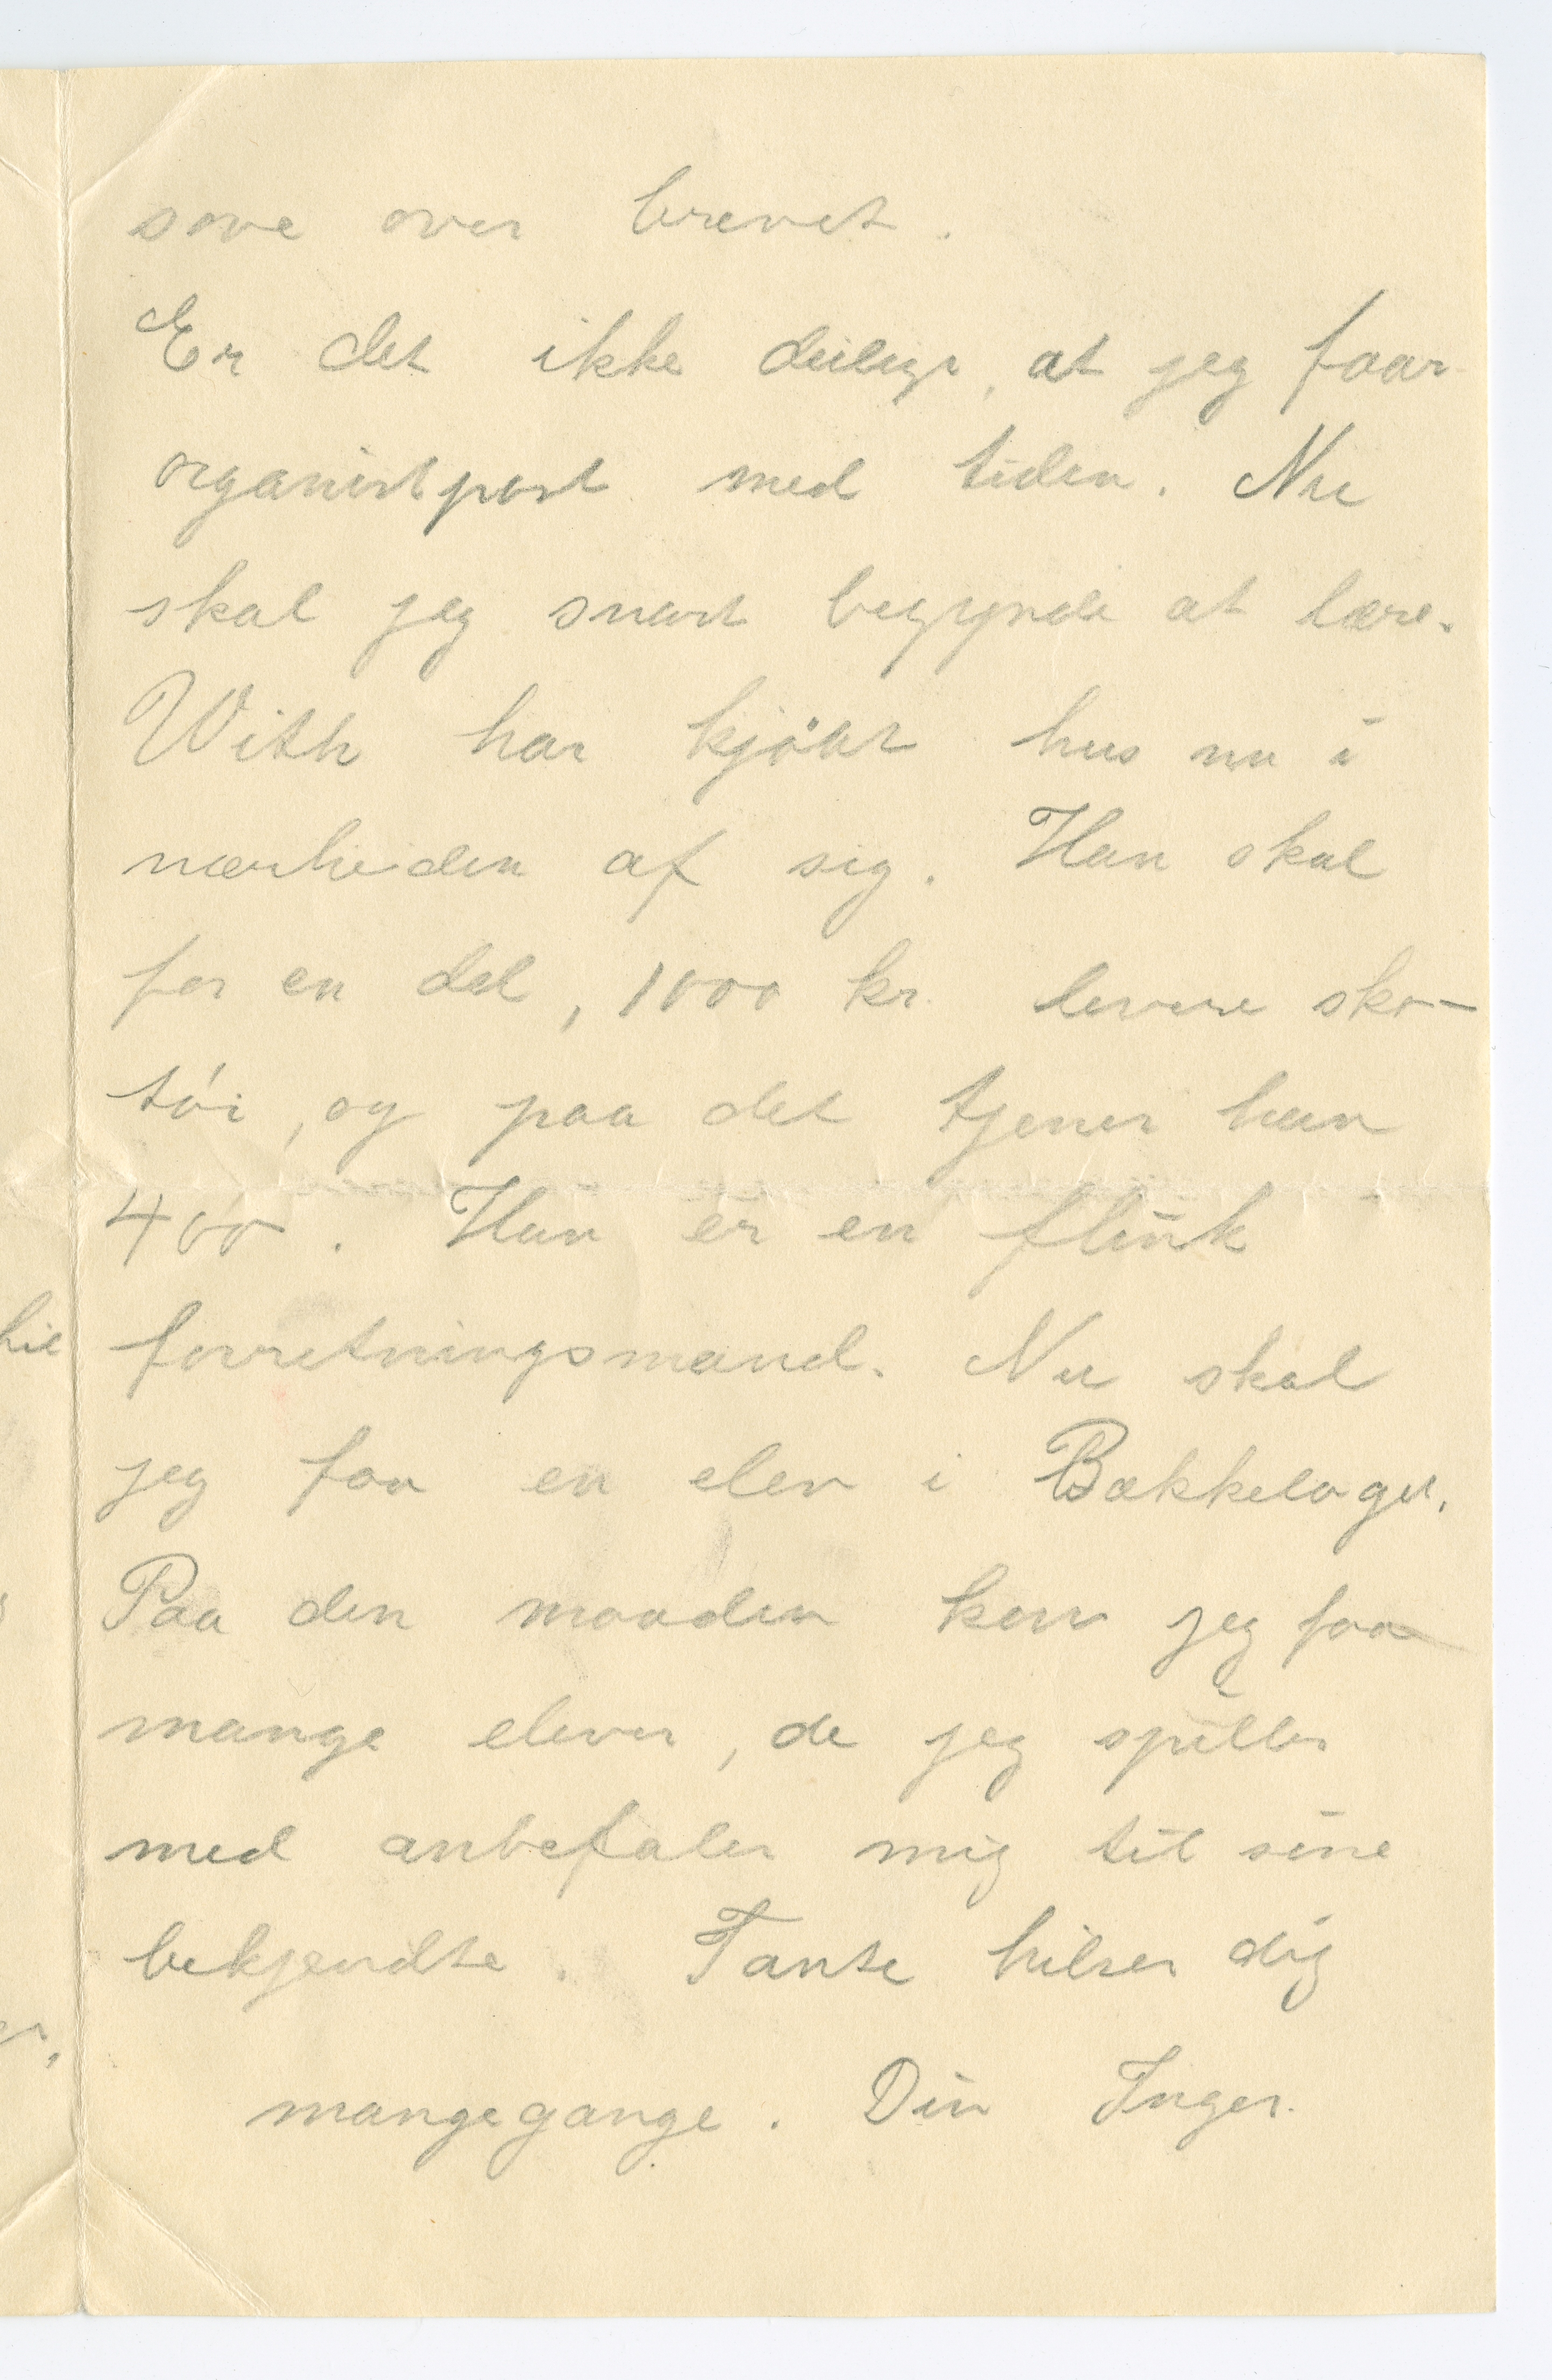 sove over brevet.
Er det ikke deiligt, at jeg faar
organistpost med tiden. Nu
skal jeg snart begynde at lære.
With har kjöbt hus nu i
nærheden af sig. Han skal
for en del, 1000 kr. levere sko-
töi, og paa det tjener han
400. Han er en flink
forretningsmand. Nu skal
jeg faa en elev i Bækkelaget.
Paa den maaden kan jeg faa
mange elever, de jeg spiller
med anbefaler mig til sine
bekjendte. Tante hilser dig
mangegange. Din Inger.